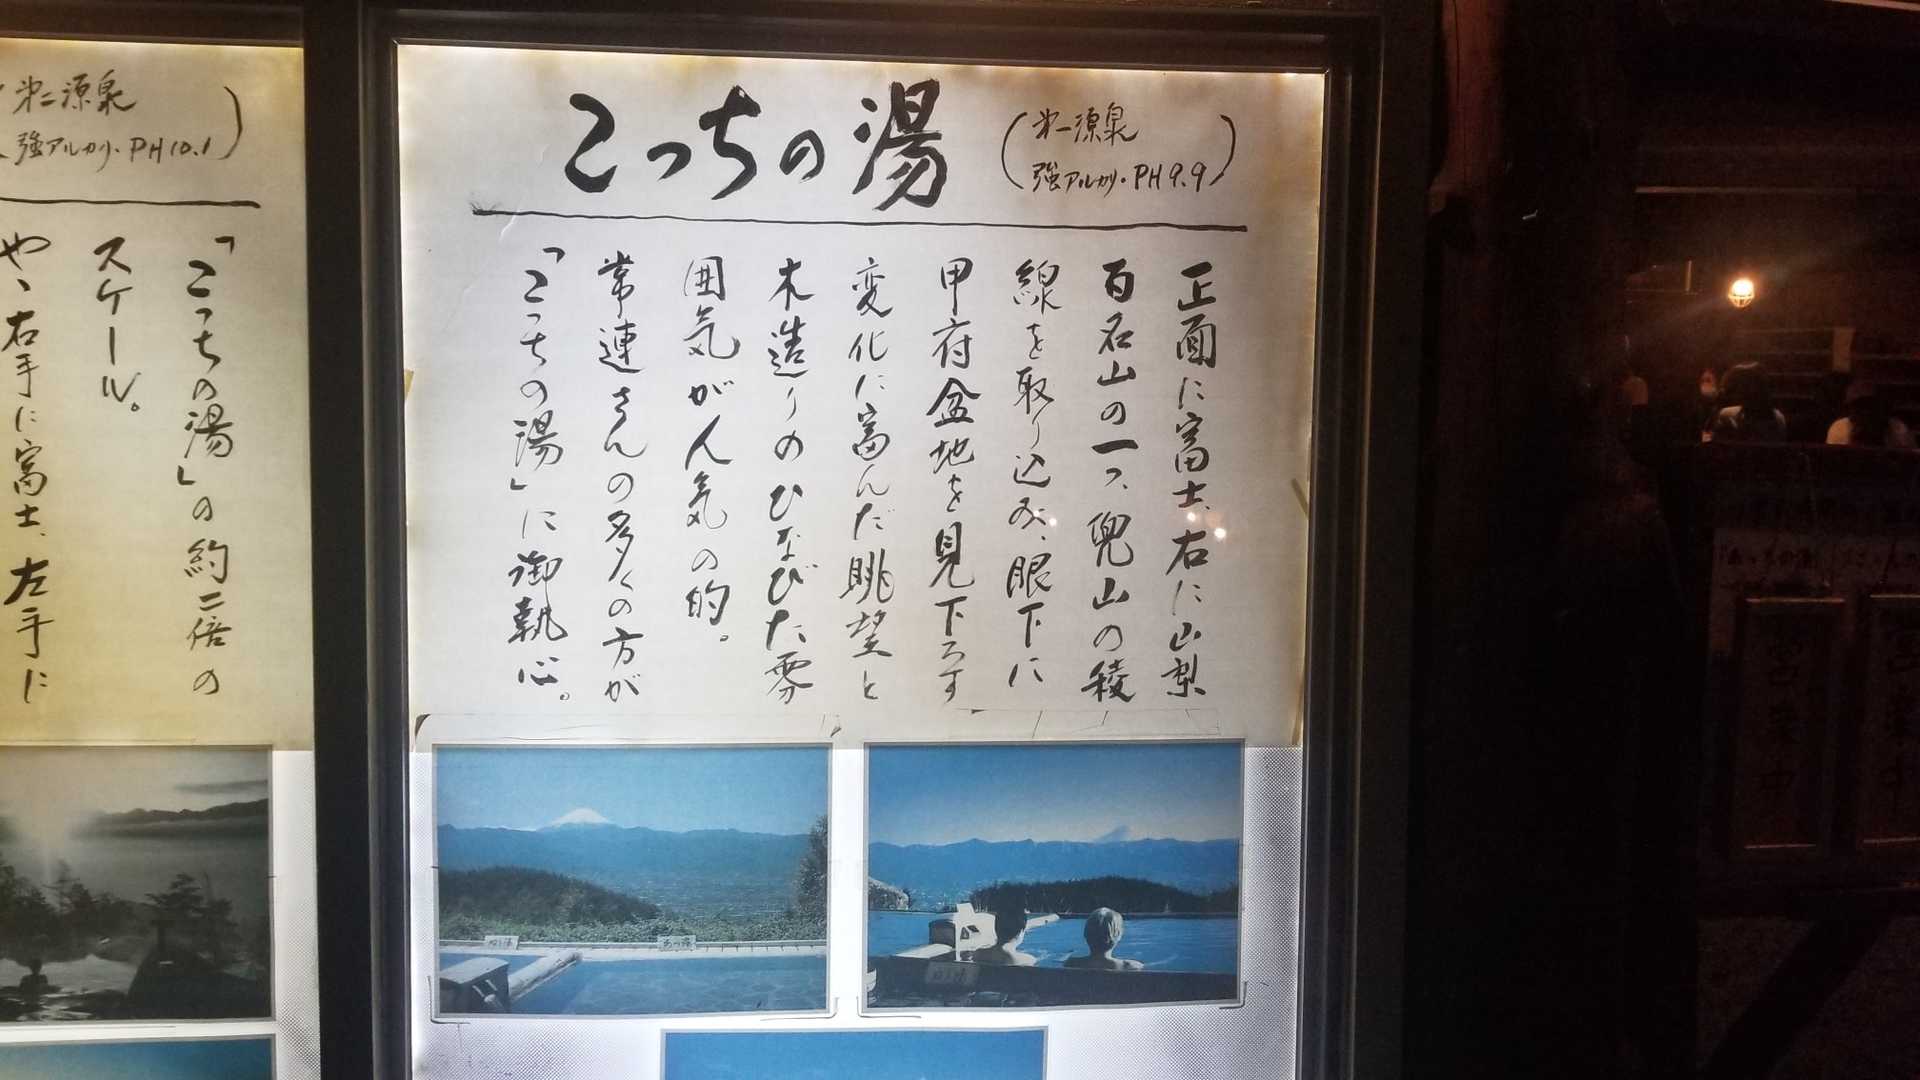 こっちの湯
(第一源泉
強アルカリ・PH9.9)
正面に富士、右に山梨
百名山の一つ、兜山の稜
線を取り込み、眼下に
甲府盆地を見下ろす
変化に富んだ眺望と
木造りのひなびた雰
囲気が人気の的。
常連さんの多くの方が
「こっちの湯」に御執心。
第二源泉
強アルカリ・PH10.1)
「こっちの湯」の約二倍の
スケール。
やゝ右手に富士、左手に
ぬる湯
あつ湯
営業中